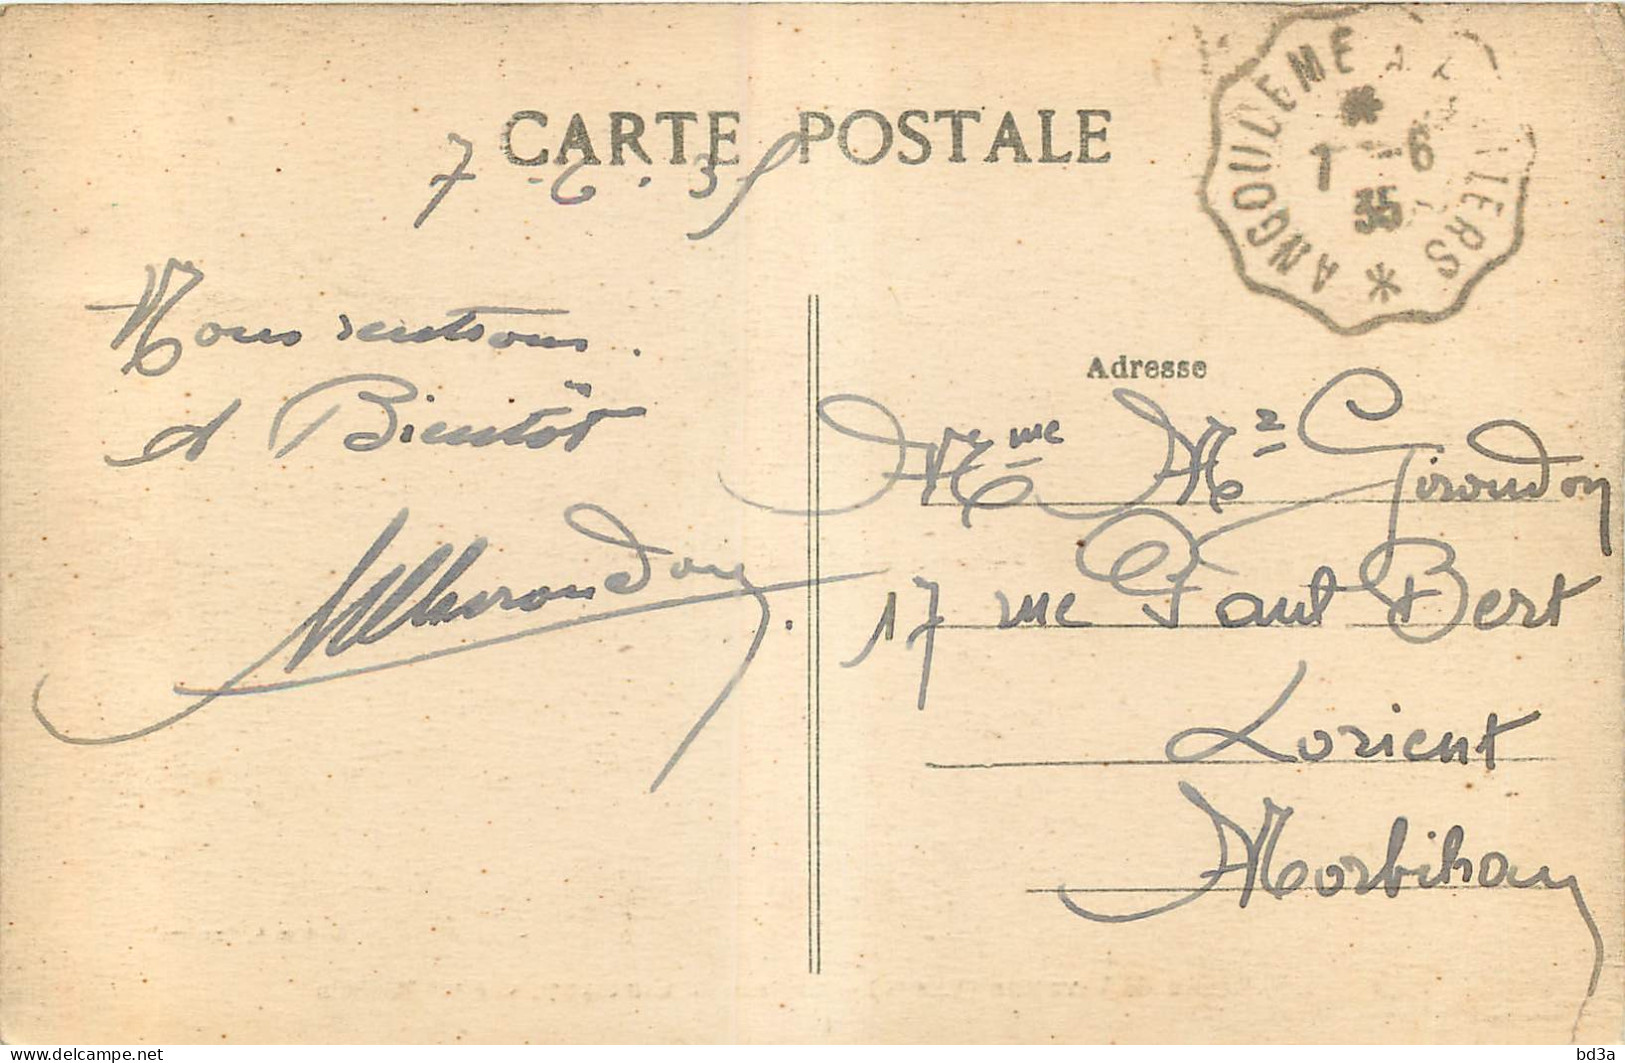 CARTE POSTALE
7 - 6 . 35
ANGOULEME
7 -6
35
Nous rentrons.
A Bientôt
Adresse
Mme Girondon
17 rue Paul Bert
Lorient
Morbihan
delcampe.net
bd3a